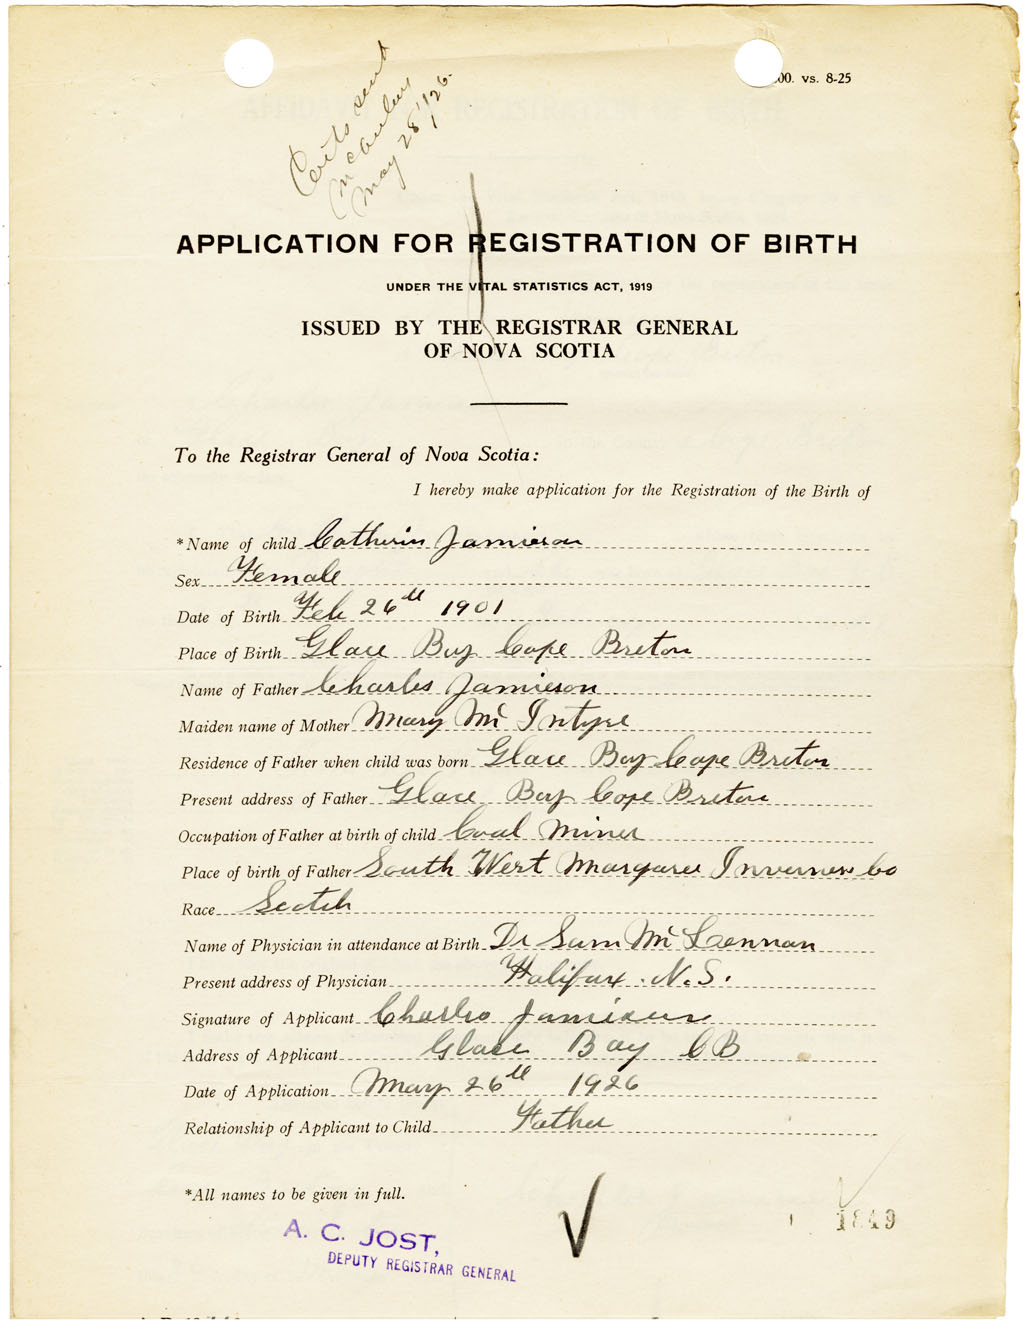 00. vs. 8-25
Certs sent
May 28/26.
APPLICATION FOR REGISTRATION OF BIRTH
UNDER THE VITAL STATISTICS ACT, 1919
ISSUED BY THE REGISTRAR GENERAL
OF NOVA SCOTIA
To the Registrar General of Nova Scotia:
I hereby make application for the Registration of the Birth of
*Name of child Catherin Jamieson
Sex Female
Date of Birth Feb 26th 1901
Place of Birth Glace Bay Cape Breton
Name of Father Charles Jamieson
Maiden name of Mother Mary Mc Intyre
Residence of Father when child was born Glace Bay Cape Breton
Present address of Father Glace Bay Cape Breton
Occupation of Father at birth of child Coal Miner
Place of birth of Father South West Margaree Inverness Co
Race Scotch
Name of Physician in attendance at Birth Dr Sam Mc Lennan
Present address of Physician Halifax. N.S.
Signature of Applicant Charles Jamieson
Address of Applicant Glace Bay CB
Date of Application May 26th 1926
Relationship of Applicant to Child Father
*All names to be given in full.
1849
A. C. JOST,
DEPUTY REGISTRAR GENERAL